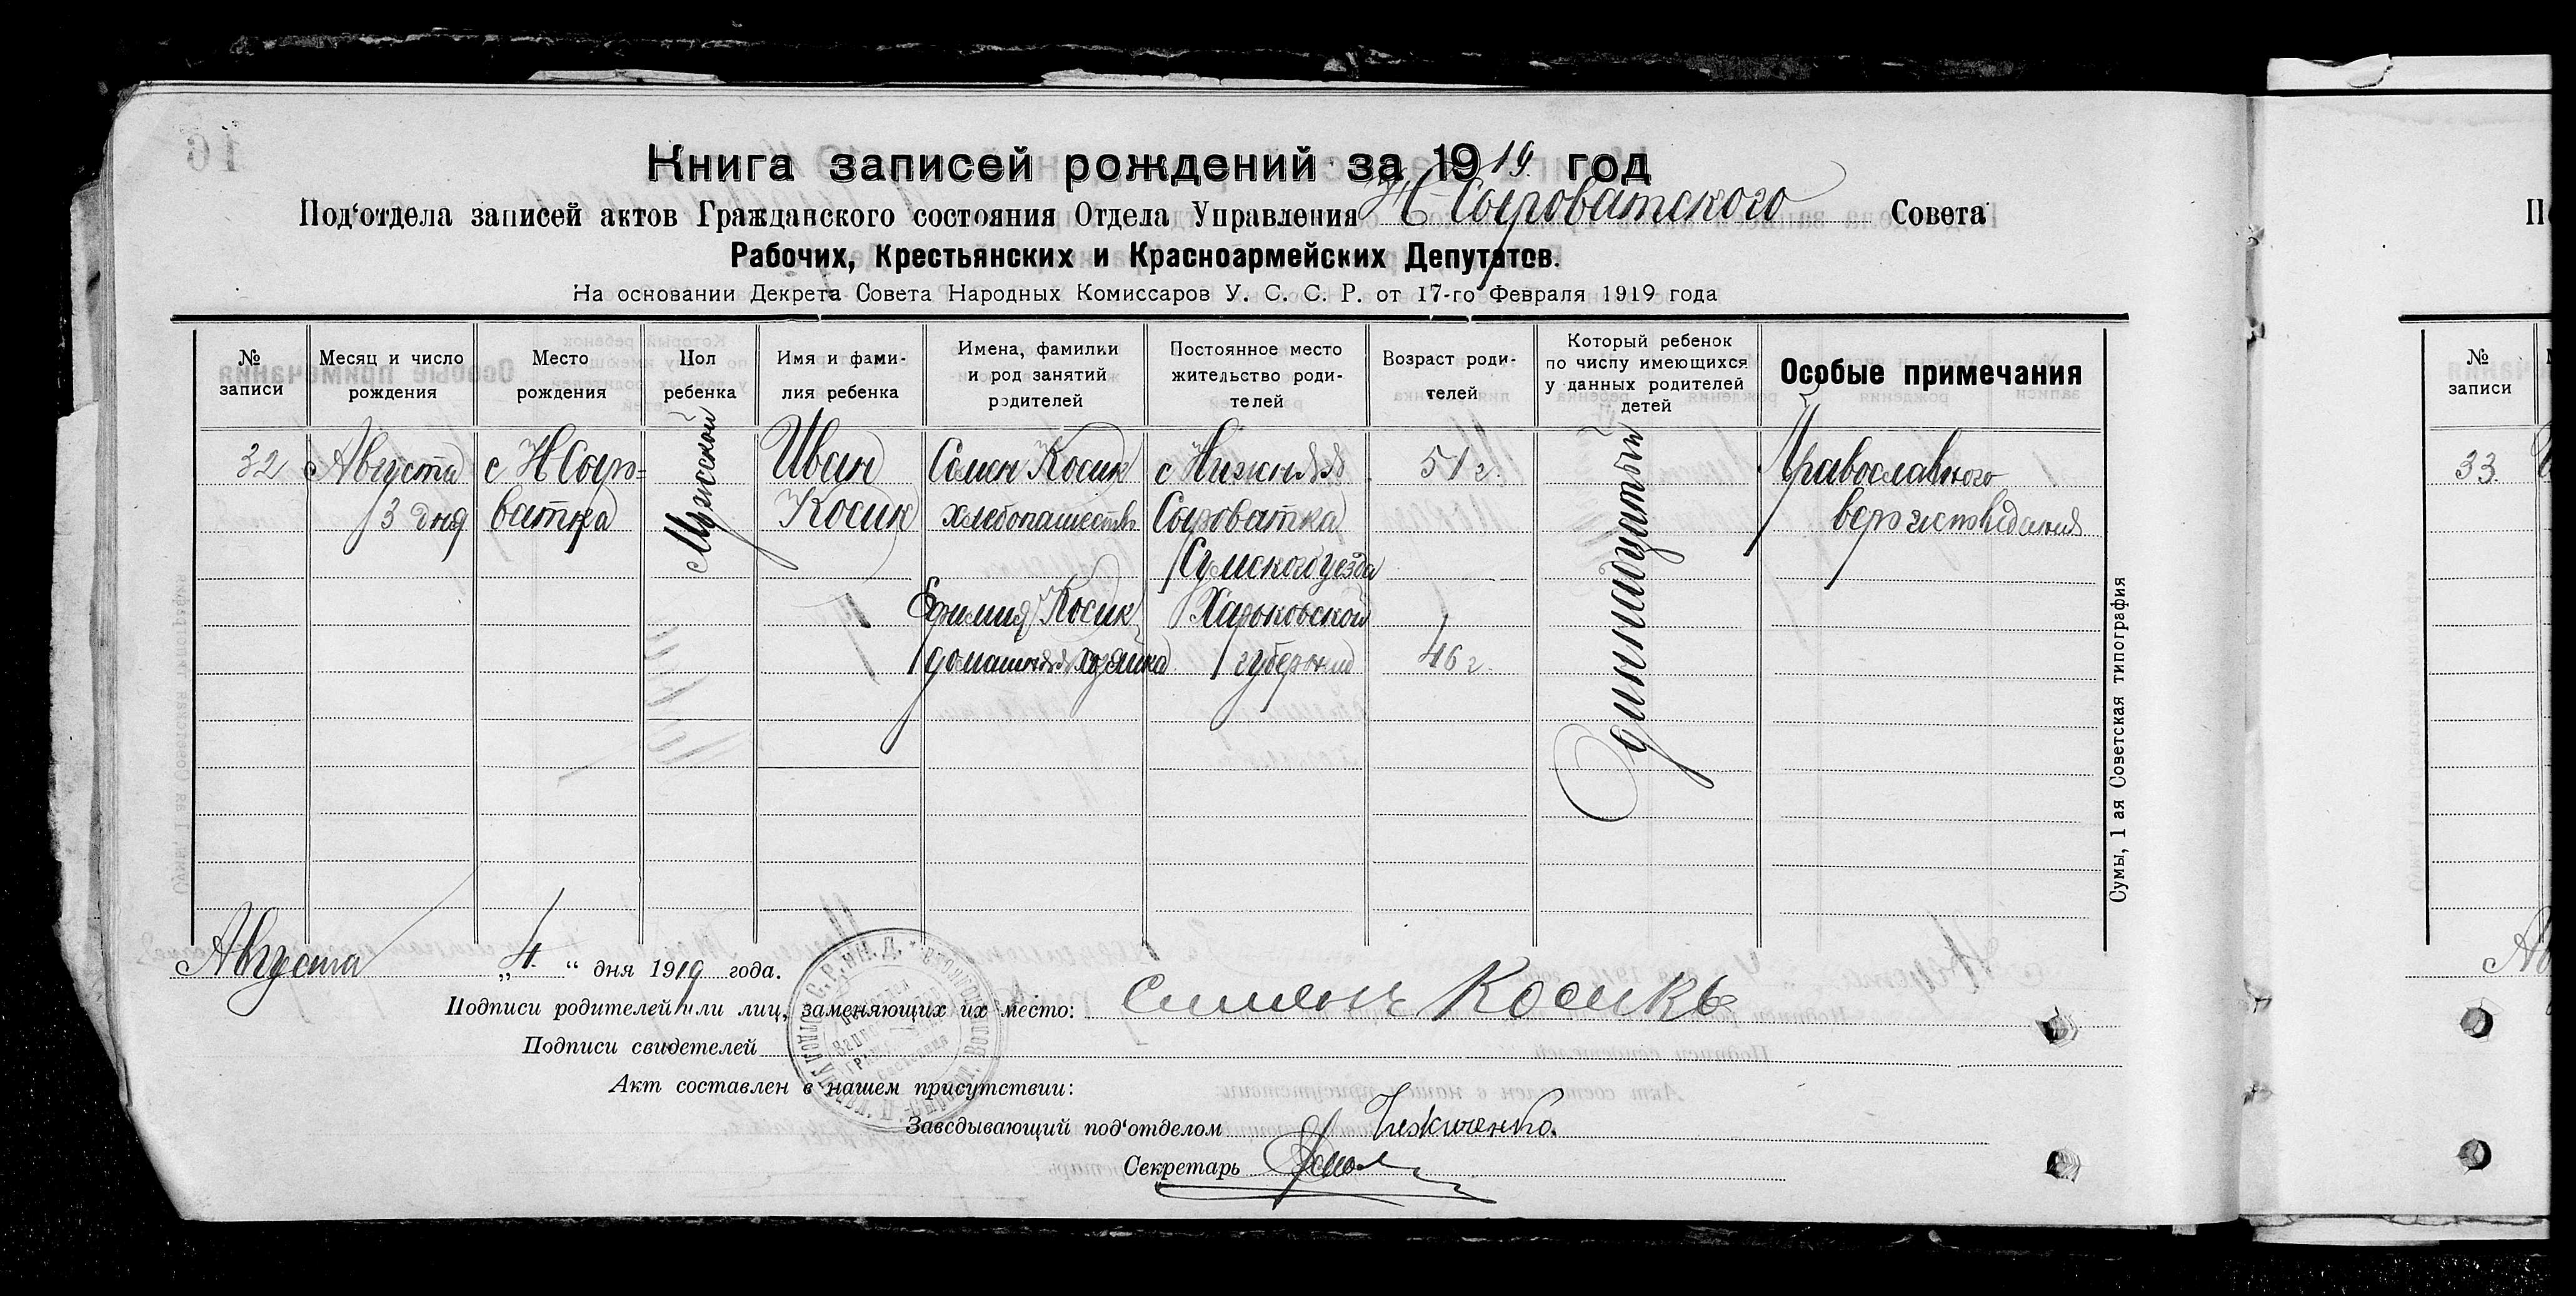 Книга записей рождений за 1919 год
Под'отдела записей актов Гражданского состояния Отдела Управления Н-Сыроватского Совета
Рабочих, Крестьянских и Красноармейских Депутатов.
На основании Декрета Совета Народных Комиссаров У. С. С. Р. от 17-го Февраля 1919 года
№ записи
Месяц и число рождения
Место рождения
Пол ребенка
Имя и фами-
лия ребенка
Имена, фамилии
и род занятий
родителей
Постоянное место
жительство роди-
телей
Возраст роди-
телей
Который ребенок
по числу имеющихся
у данных родителей
детей
Особые примечания
32
Августа
3 дня
с Н Сыро=
ватка
Мужской
Иван
Косик
Семен Косик
хлебопашество
Ефимия Косик
домашняя хозяйка
с Нижняя
Сыроватка
Сумского уезда
Харьковской
губернии
51 г.
46 г.
Одиннадцатый
Православного
вероисповедания
Сумы, 1 ая Советская типография
Августа „4“ дня 1919 года.
Подписи родителей или лиц, заменяющих их место: Симянъ Косикъ
Подписи свидетелей
Акт составлен в нашем присутствии:
Заведывающий под'отделом
Секретарь
№
записи
33